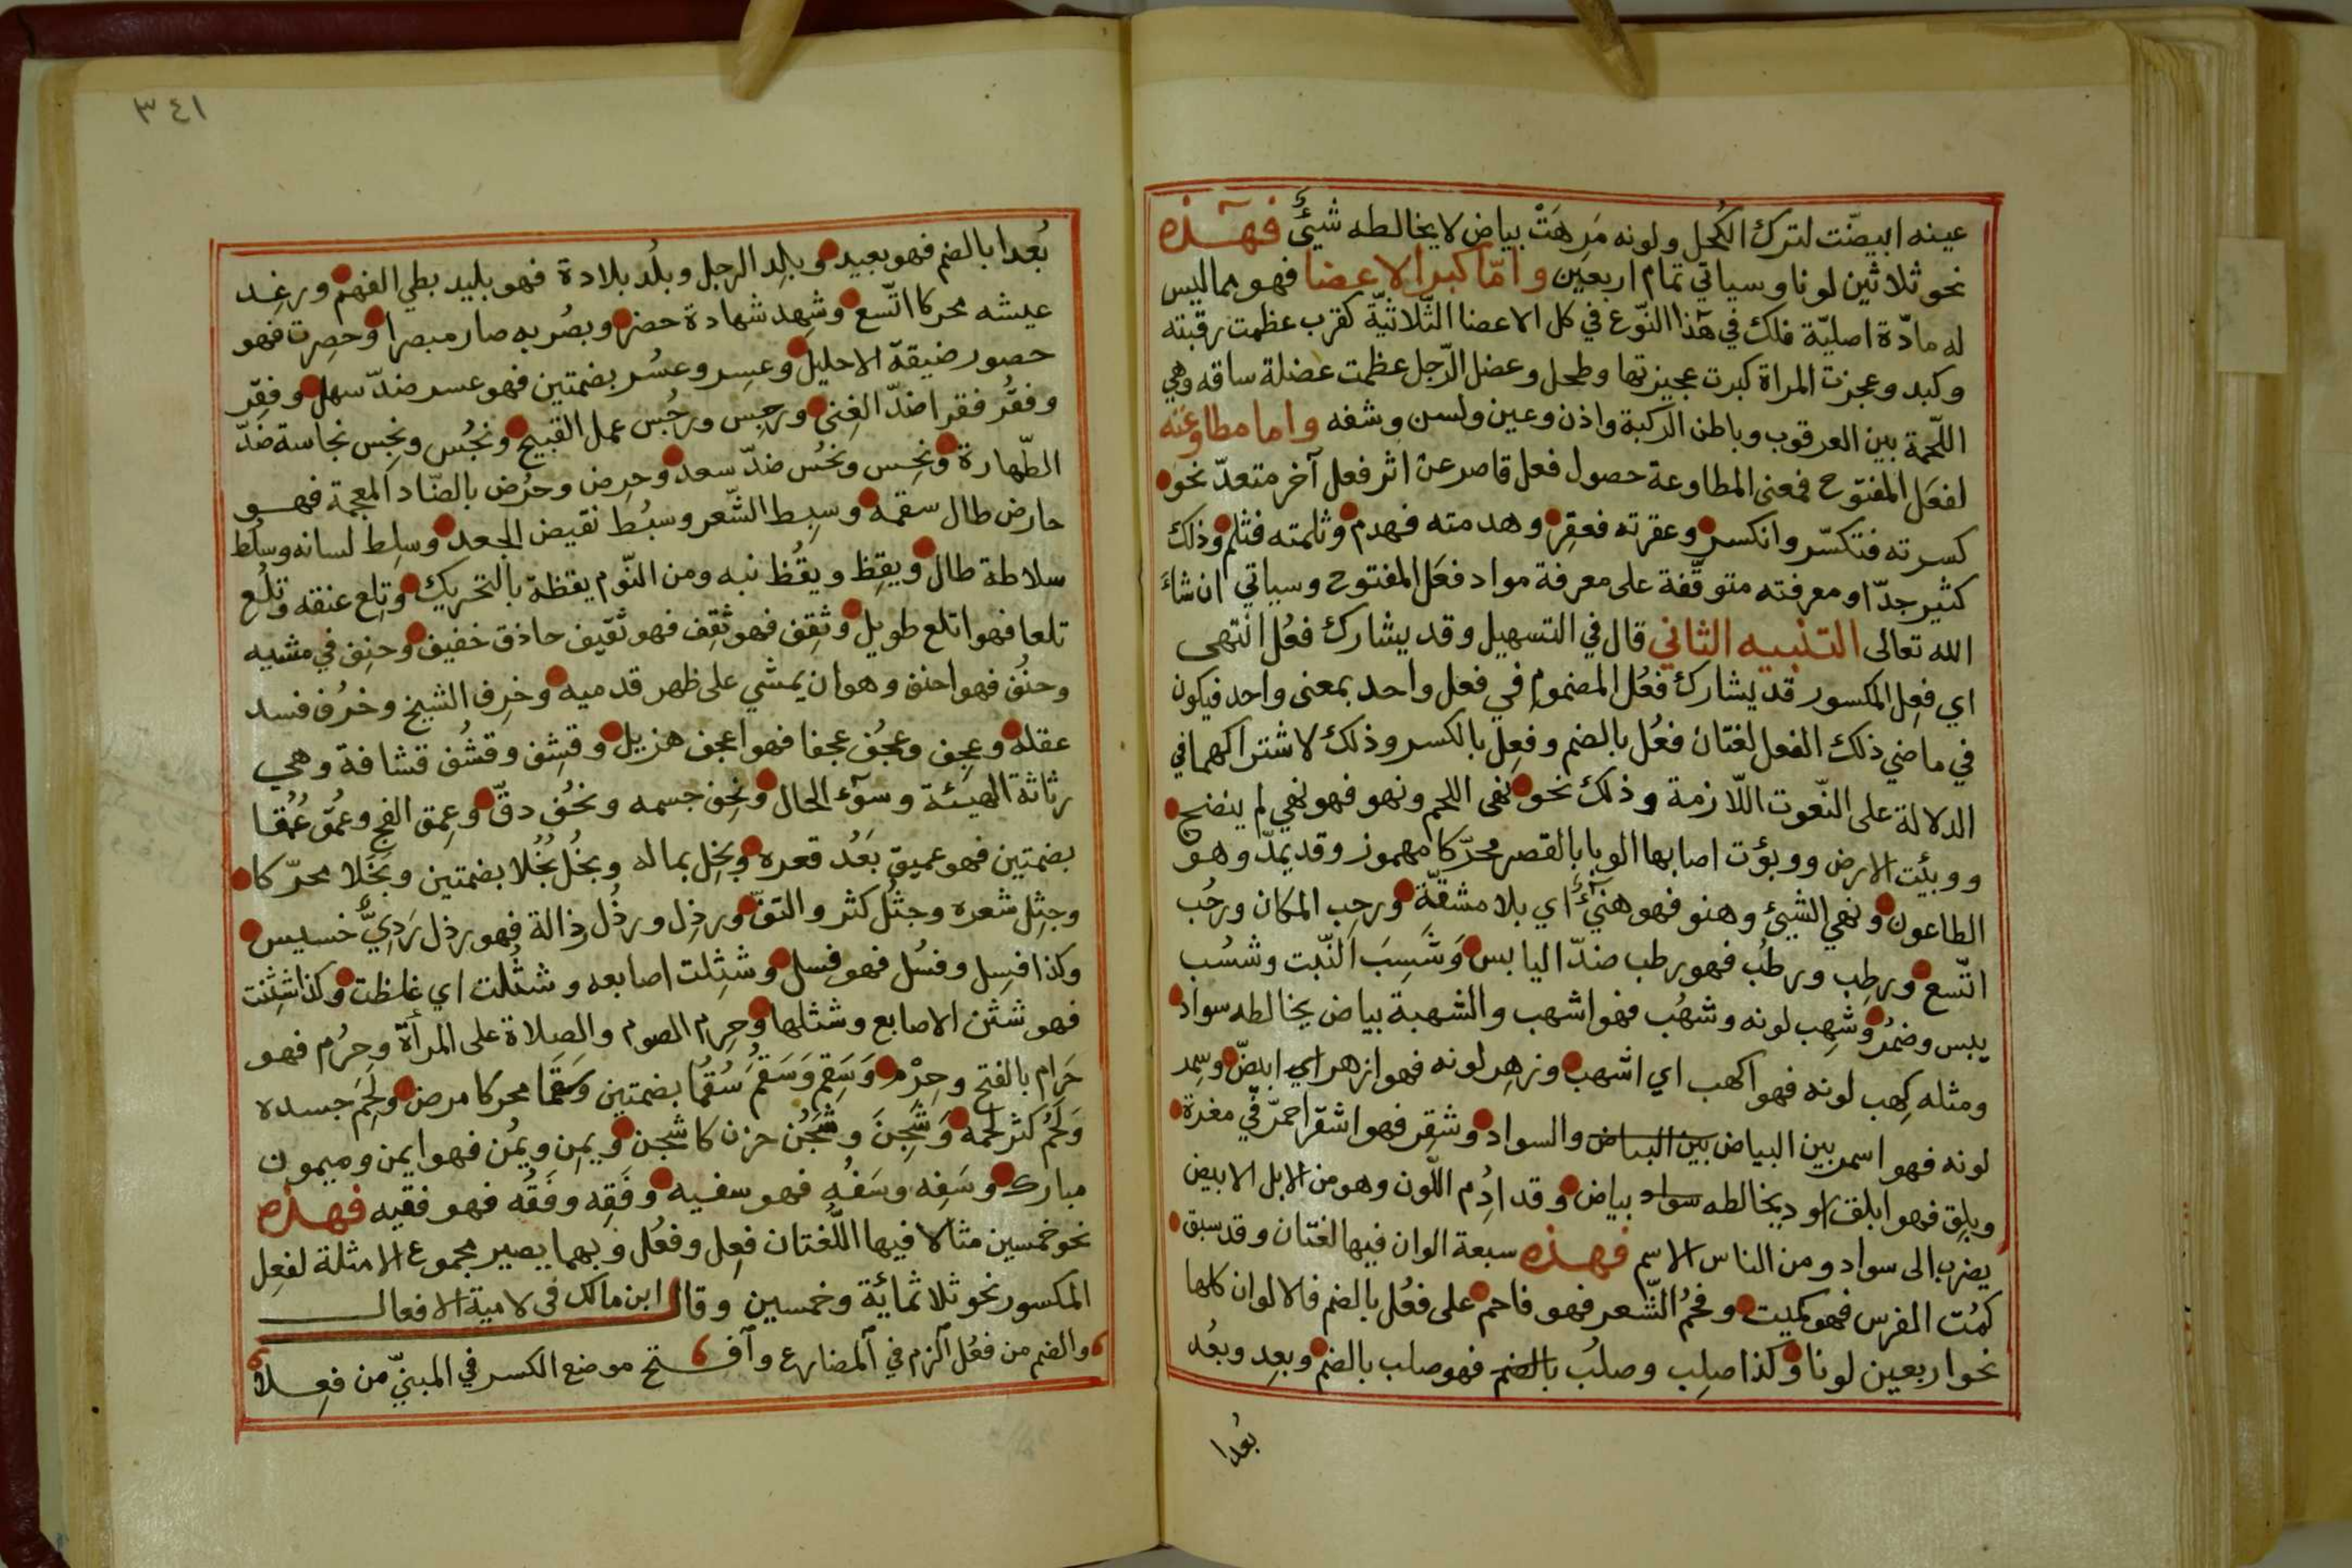 عينه ابيضّت لترك الكُحل ولونه مَرِهَتْ بياض لا يخالطه شيئٌ فهٰذه
نحو ثلاثين لونا وسياتي تمام اربعين وامّا كبر الاعضا فهو مما ليس
له مادّة اصليّة فلك في هٰذا النّوع في كل الاعضا الثّلاثيّة كقرب عظمت رقبته
وكبد وعجزت المراة كبرت عجيزتها وطحل وعضل الرّجل عظمت عضلة ساقه وهي
اللّحمة بين العرقوب وباطن الركبة واذن وعين ولسن وشفه واما مطاوعته
لفعَل المفتوح فمعنى المطاوعة حصول فعل قاصر عن اثر فعل آخر متعدّ نحو
كسرته فتكسّر وانكسر وعقرته فعقِر وهدمته فهدم وثلمته فثلم وذلك
كثير جدّا ومعرفته متوقّفة على معرفة مواد فعَل المفتوح وسياتي ان شاء
الله تعالى التنبيه الثاني قال في التسهيل وقد يشارك فعُل انتهى
اي فعِل المكسور قد يشارك فعُل المضموم في فعل واحد بمعنى واحد فيكون
في ماضي ذلك الفعل لغتان فعُل بالضم وفعِل بالكسر وذلك لاشتراكهما في
الدلالة على النّعوت اللّازمة وذلك نحو نهى اللحم ونهو فهو نهي لم ينضج
ووبئت الارض ووبؤت اصابها الوبا بالقصر محرّكا مهموز وقد يمدّ وهو
الطاعون ونهي الشيئ وهنو فهو هنيٓئٌ اي بلا مشقّة ورحِب المكان ورحُب
اتّسع ورطِب ورطُب فهو رطب ضدّ اليابس وَشَسِبَ النّبت وشسُب
يبس وضمُر وشهِب لونه وشهُب فهو اشهب والشهبة بياض يخالطه سواد
ومثله كهِب لونه فهو اكهب اي اشهب وزهِر لونه فهو ازهر اي ابيضّ وسمِر
لونه فهو اسمر بين البياض بين البياض والسواد وشقِر فهو اشقر احمرّ في مغرة
وبلِق فهو ابلق او ديخالطه سواد بياض وقد ادُِم اللّون وهو من الابل الابيض
يضرب الى سواد ومن الناس الاسم فهذه سبعة الوان فيها لغتان وقد سبق
كمُت الفرس فهو كميت وفحُم الشّعر فهو فاحم على فعُل بالضم فالالوان كلها
نحو اربعين لونا وكذا صلِب وصلُب بالضم فهو صلب بالضم وبعِد وبعُد
بُعدا
٣٤١
بُعدا بالضم فهو بعيد وبلِد الرجل وبلُد بلادة فهو بليد بطي الفهم ورغِد
عيشه محركا اتّسع وشهِد شهادة حضر وبصُر به صار مبصرا وحصِرت فهو
حصور ضيقة الاحليل وعسِر وعسُر بضمتين فهو عسر ضدّ سهل وفقِر
وفقُر فقرا ضدّ الغِنى ورجِس ورجُس عمل القبيح ونجُس ونجِس نجاسة ضدّ
الطّهارة ونحِس ونحُس ضدّ سعد وحرِض وحرُض بالضّاد المعجمة فهو
حارض طال سقمه وسبِط الشّعر وسبُط نقيض الجعد وسلِط لسانه وسلُط
سلاطة طال ويقِظ ويقُظ نبه ومن النّوم يقظة بالتحريك وتلِع عنقه وتلُع
تلعا فهو اتلع طويل وثقِف فهو ثقِف فهو ثقيف حاذق خفيف وحنِف في مشيه
وحنُف فهو احنف وهو ان يمشي على ظهر قدميه وخرِف الشيخ وخرُف فسد
عقله وعجِف وعجُف عجفا فهو اعجف هزيل وقشِف وقشُف قشافة وهي
رثاثة الهيئة وسوٓء الحال ونحِف جسمه ونحُف دقّ وعمِق الفج وعمُق عُمُقا
بضمتين فهو عميق بَعُد قعره وبخِل بماله وبخُل بُخُلا بضمتين وبَخَلا محرّكا
وجثِل شعره وجثُل كثر والتفّ ورذِل ورذُل رذالة فهو رذل رَدِيٌّ خسيس
وكذا فسِل وفسُل فهو فسل وشثِلت اصابعه وشثُلت اي غلظت وكذا شثِنت
فهو شثن الاصابع وشثلها وحرِم الصوم والصلاة على المرأة وحرُم فهو
حَرام بالفتح وحِرْم وَسَقِمَ وَسَقُمَ سُقُمًا بضمتين وسَقَمًا محركا مرض ولَحِمَ جسده
وَلَحُمَ كثر لحمه وَشَجِنَ وشَجُن حزن كاشجن ويمِن ويمُن فهو ايمن وميمون
مبارك وسَفِه وسَفُه فهو سفيه وفَقِه وفَقُه فهو فقيه فهذه
نحو خمسين مثالا فيها اللّغتان فعِل وفعُل وبهما يصير مجموع الامثلة لفعِل
المكسور نحو ثلاثمائة وخمسين وقال ابن مالك في لامية الافعال
والضم من فعُل الزم في المضارع وافـتح موضع الكسر في المبنيّ من فعِلا